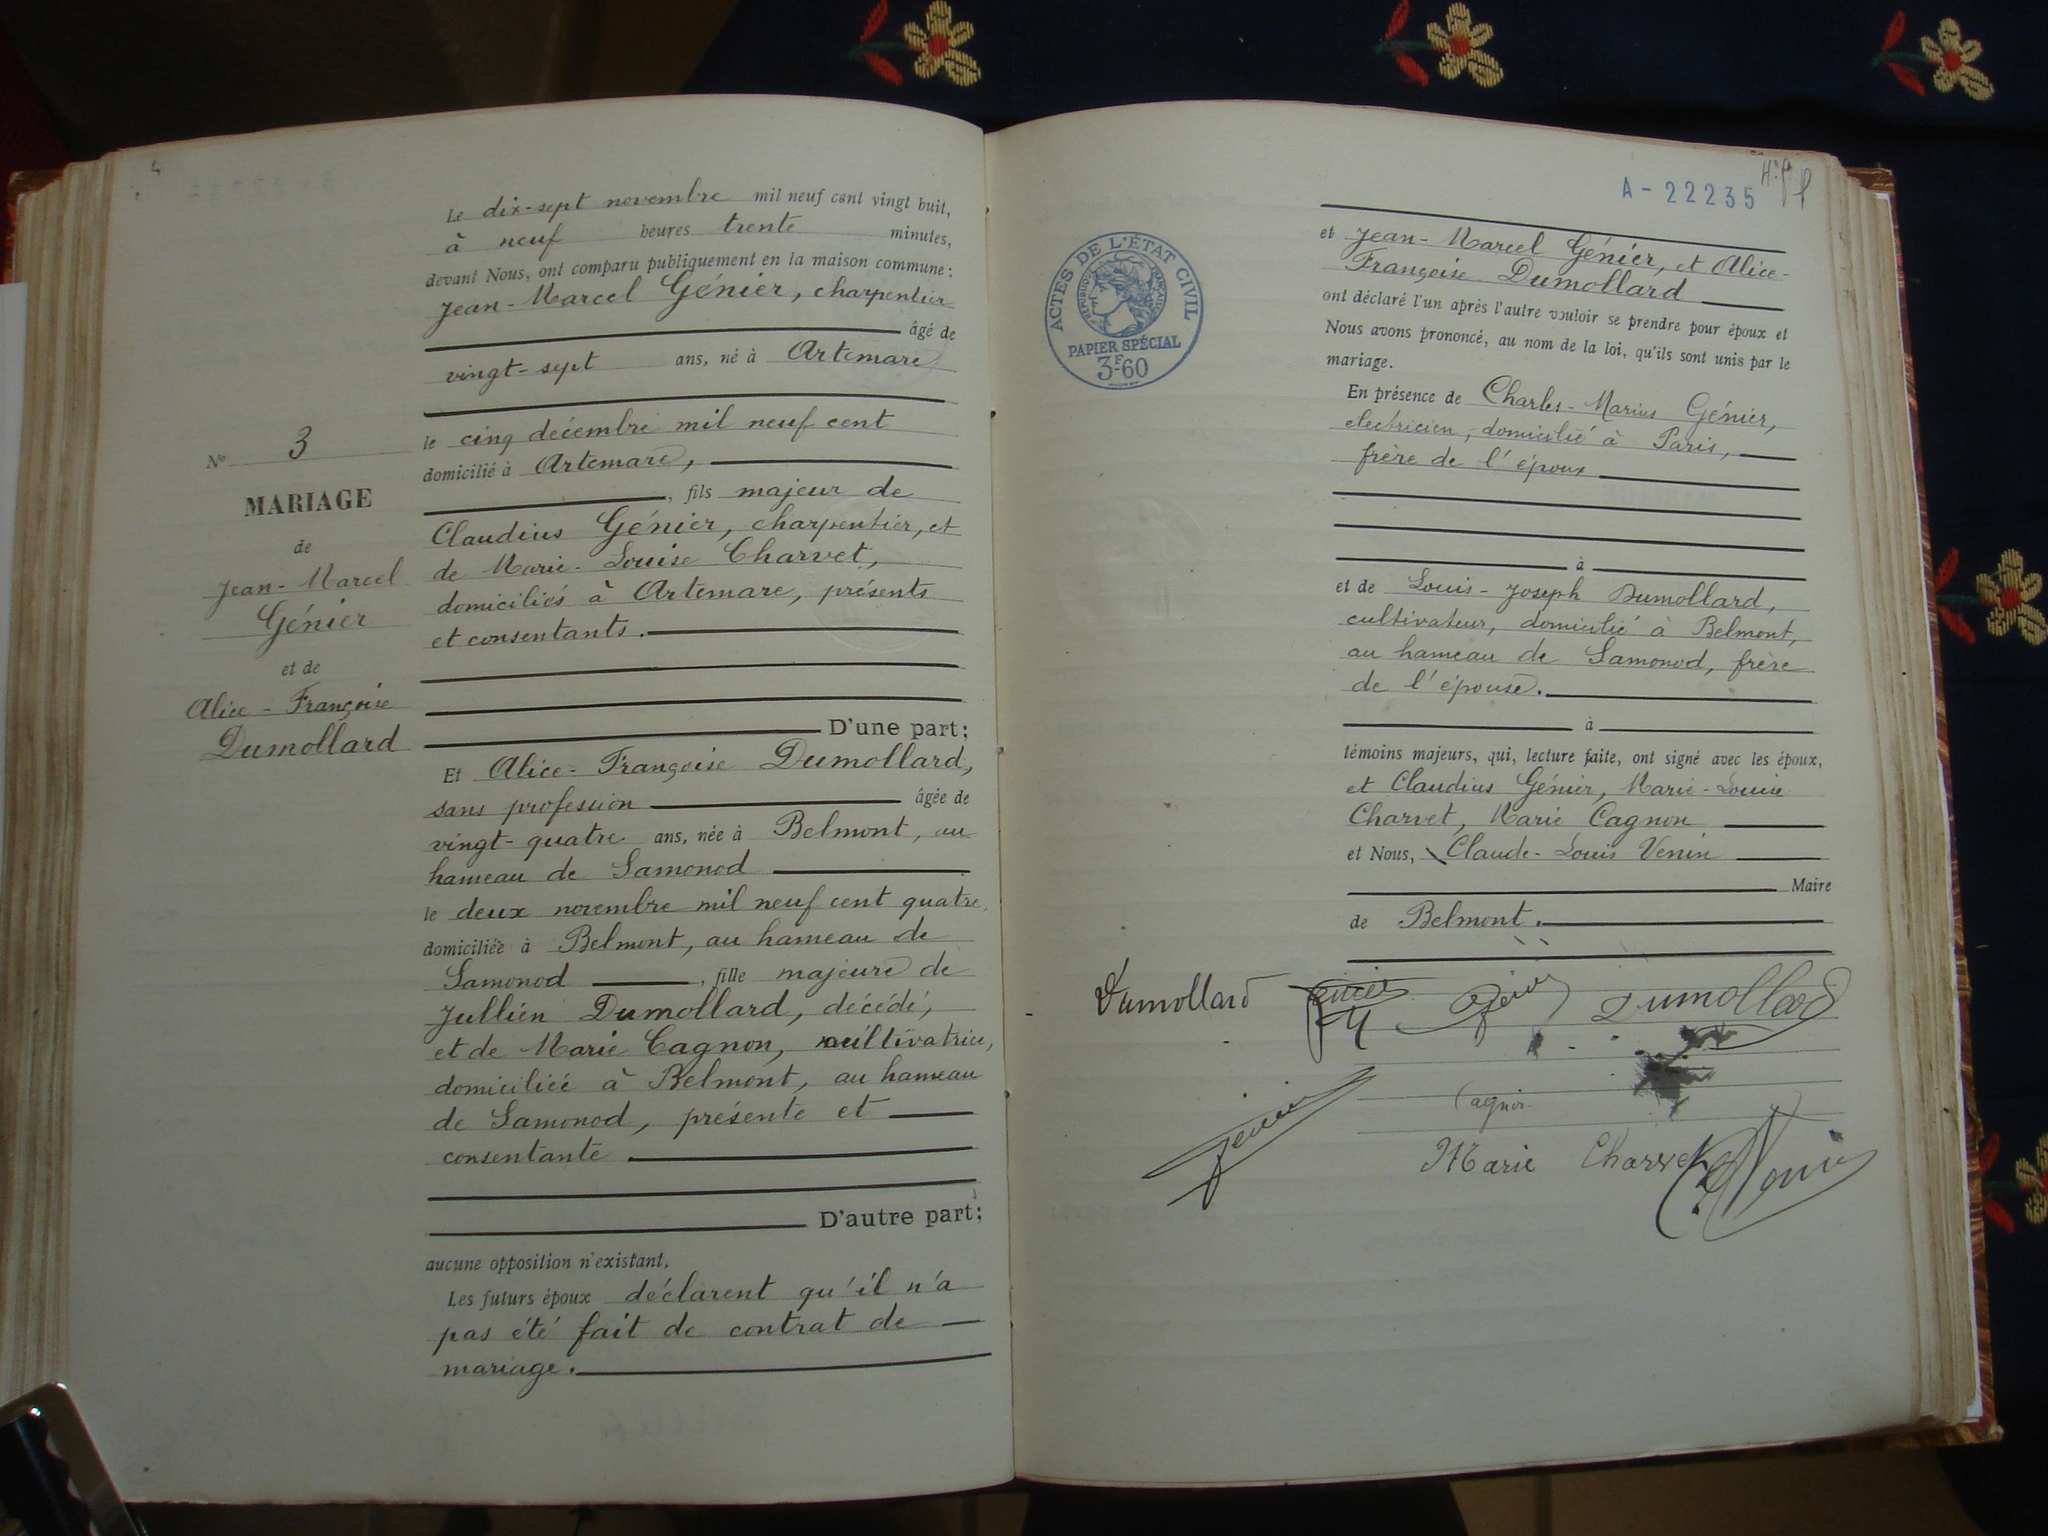 4
Le dix-sept novembre mil neuf cent vingt huit,
à neuf heures trente minutes,
devant Nous, ont comparu publiquement en la maison commune:
Jean-Marcel Génier, charpentier
âgé de
vingt-sept ans, né à Artemare
le cinq décembre mil neuf cent
domicilié à Artemare,
, fils majeur de
Claudius Génier, charpentier, et
de Marie-Louise Charvet,
domiciliés à Artemare, présents
et consentants.
D'une part;
Et Alice-Françoise Dumollard,
sans profession âgée de
vingt-quatre ans, née à Belmont, au
hameau de Samonod
le deux novembre mil neuf cent quatre,
domiciliée à Belmont, au hameau de
Samonod , fille majeure de
Jullien Dumollard, décédé,
et de Marie Cagnon, cultivatrice,
domiciliée à Belmont, au hameau
de Samonod, présente et
consentante
D'autre part;
aucune opposition n'existant,
Les futurs époux déclarent qu'il n'a
pas été fait de contrat de
mariage.
N° 3
MARIAGE
de
Jean-Marcel
Génier
et de
Alice-Françoise
Dumollard
A-22235
ACTES DE L'ÉTAT CIVIL
RÉPUBLIQUE FRANÇAISE
PAPIER SPÉCIAL
3F60
et Jean-Marcel Génier, et Alice-
Françoise Dumollard
ont déclaré l'un après l'autre vouloir se prendre pour époux et
Nous avons prononcé, au nom de la loi, qu'ils sont unis par le
mariage.
En présence de Charles-Marius Génier,
electricien, domicilié à Paris,
frère de l'époux
à
et de Louis-Joseph Dumollard,
cultivateur, domicilié à Belmont,
au hameau de Samonod, frère
de l'épouse.
à
témoins majeurs, qui, lecture faite, ont signé avec les époux,
et Claudius Génier, Marie-Louise
Charvet, Marie Cagnon
et Nous, Claude-Louis Venin
Maire
de Belmont.
Dumollard Génier Génier Dumollard
Génier
Cagnon
Marie Charvet Venin